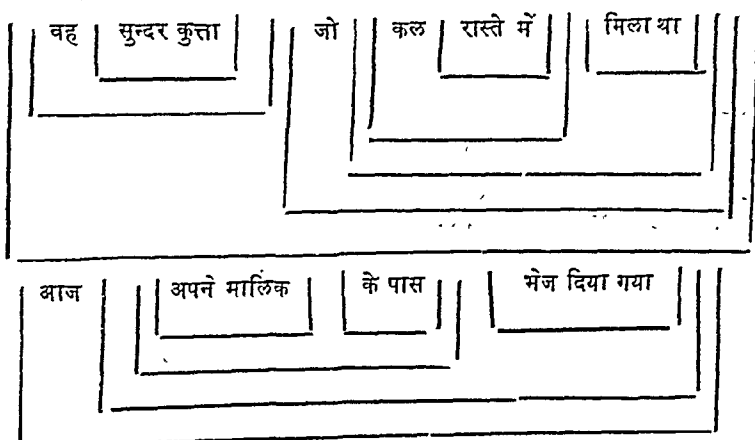 वह सुन्दर कुत्ता जो कल रास्ते में मिला था
आज अपने मालिक के पास भेज दिया गया